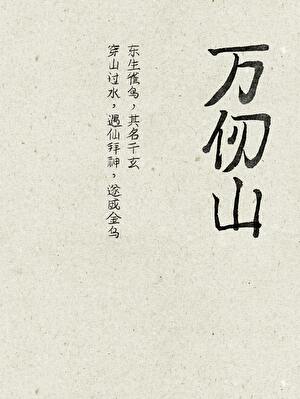 万仞山
东生雀鸟，其名千玄
穿山过水，遇仙拜神，遂成金乌